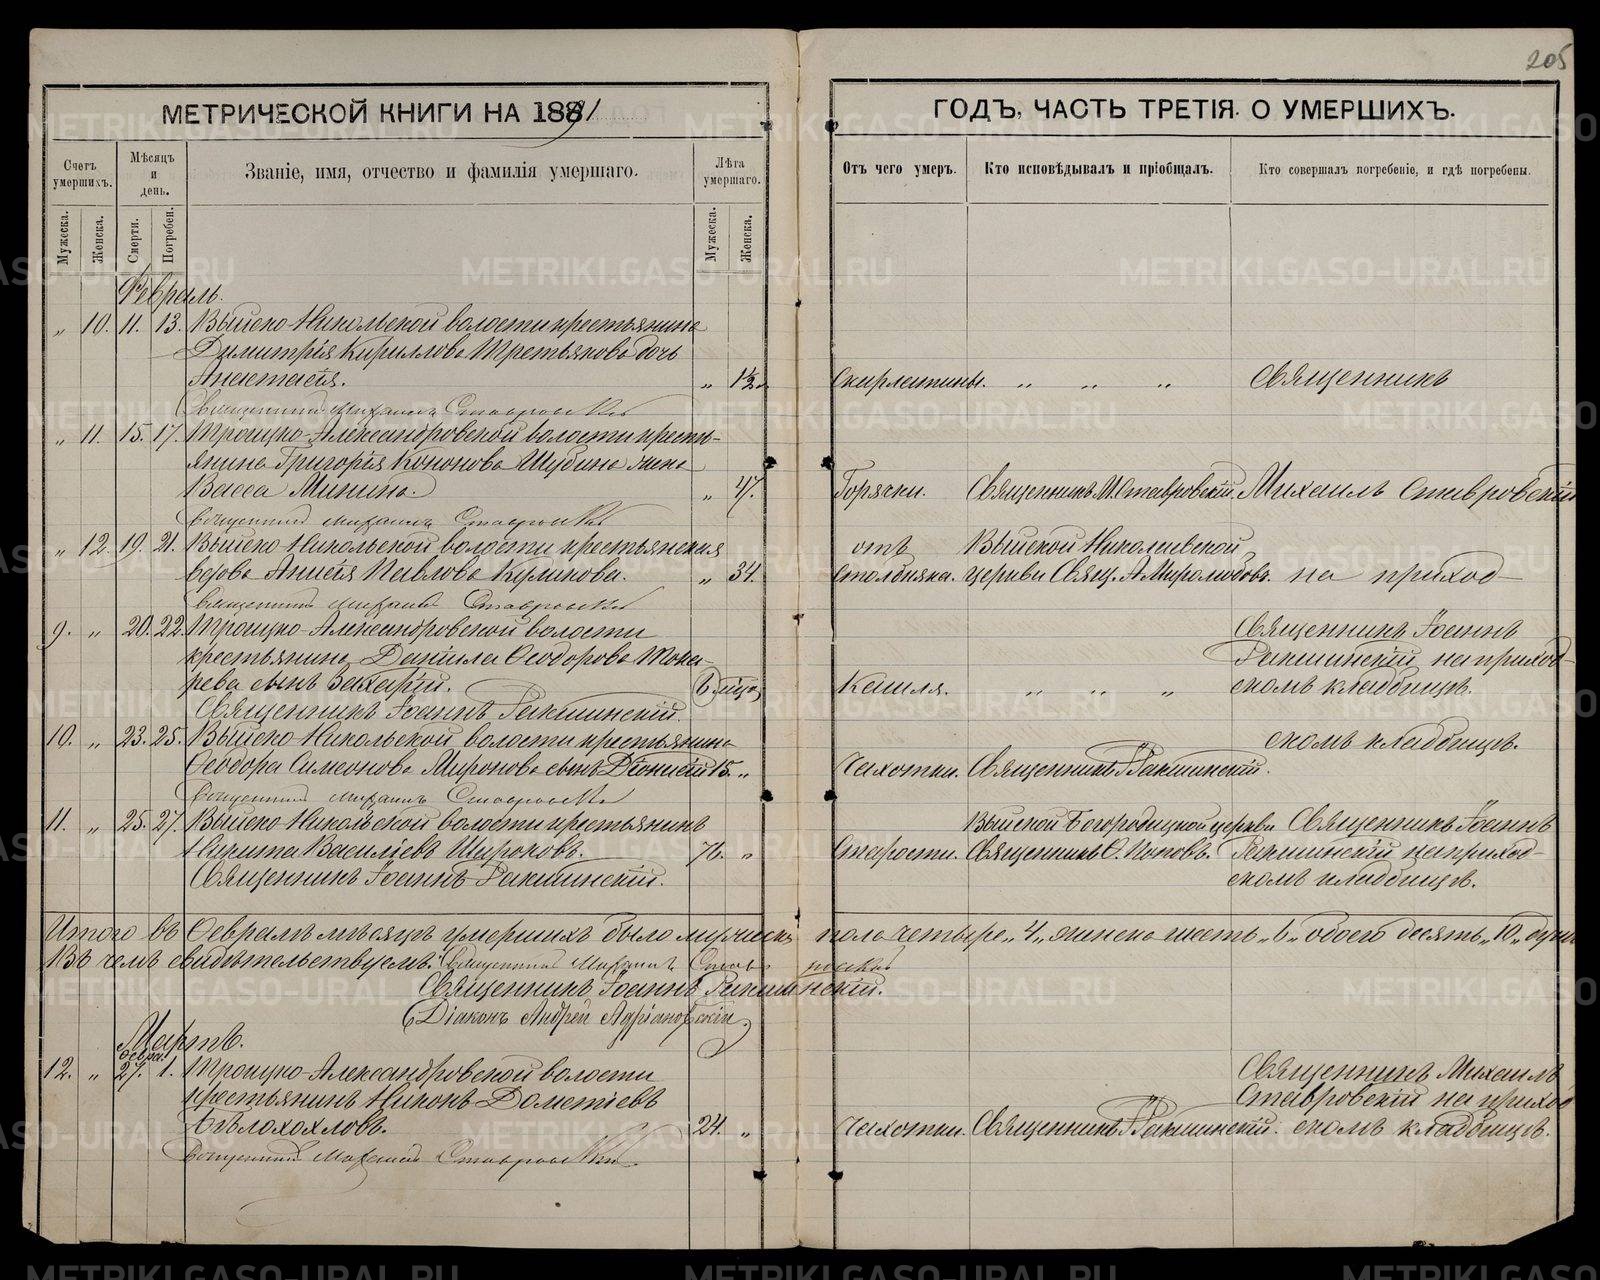 205
МЕТРИЧЕСКОЙ КНИГИ НА 1891
ГОДЪ, ЧАСТЬ ТРЕТІЯ. О УМЕРШИХЪ.
Счетъ умершихъ.
Мѣсяцъ и день.
Званіе, имя, отчество и фамилія умершаго.
Лѣта умершаго.
Отъ чего умеръ.
Кто исповѣдывалъ и пріобщалъ.
Кто совершалъ погребеніе, и гдѣ погребены.
Мужеска.
Женска.
Смерти.
Погребен.
Мужеска.
Женска.
Февраль.
„ 10. 11. 13. Выйско-Никольской волости крестьянина
Димитрія Кириллова Третьякова дочь
Анастасія. „ 1½. Скарлатины. „ „ „ Священникъ
Священникъ Михаилъ Ставровскій
„ 11. 15. 17. Троицко-Александровской волости кресть-
янина Григорія Кононова Шубина жена
Васса Минина. „ 47. Горячки. Священникъ М. Ставровскій Михаилъ Ставровскій
Священникъ Михаилъ Ставровскій
„ 12. 19. 21. Выйско-Никольской волости крестьянская отъ Выйской Николаевской
Анисія Павлова Куликова. „ 34. столбняка. церкви Свящ. А. Миролюбовъ. на приход-
Священникъ Михаилъ Ставровскій
9. „ 20. 22. Троицко-Александровской волости Священникъ Іоаннъ
крестьянина Даніила Ѳеодорова Тока- Ракшинскій на приход-
рева сынъ Захарій. 6 мѣся Кашля. „ „ „ скомъ кладбищѣ.
Священникъ Іоаннъ Ракшинскій.
10. „ 23. 25. Выйско-Никольской волости крестьянина скомъ кладбищѣ.
Ѳеодора Симеонова Миронова сынъ Діонисій 15. „ Чахотки. Священникъ Ракшинскій.
Священникъ Михаилъ Ставровскій
11. „ 25. 27. Выйско-Никольской волости крестьянинъ Выйской Богородицкой церкви Священникъ Іоаннъ
Никита Василіевъ Широковъ. 76. „ Старости. Священникъ С. Поповъ. Ракшинскій на приход-
Священникъ Іоаннъ Ракшинскій. скомъ кладбищѣ.
Итого въ Февралѣ мѣсяцѣ умершихъ было мужеска пола четыре „4„ женска шесть „6„ обоего десять „10„ душъ
Въ чемъ свидѣтельствуемъ: Священникъ Михаилъ Ставровскій
Священникъ Іоаннъ Ракшинскій.
Діаконъ Андрей Адріановскій
Мартъ.
Февра.
12. „ 27. 1. Троицко-Александровской волости Священникъ Михаилъ
крестьянинъ Никонъ Дометіевъ Ставровскій на приход
Бѣлохохловъ. 24. „ Чахотки. Священникъ Ракшинскій. скомъ кладбищѣ.
Священникъ Михаилъ Ставровскій
METRIKI.GASO-URAL.RU